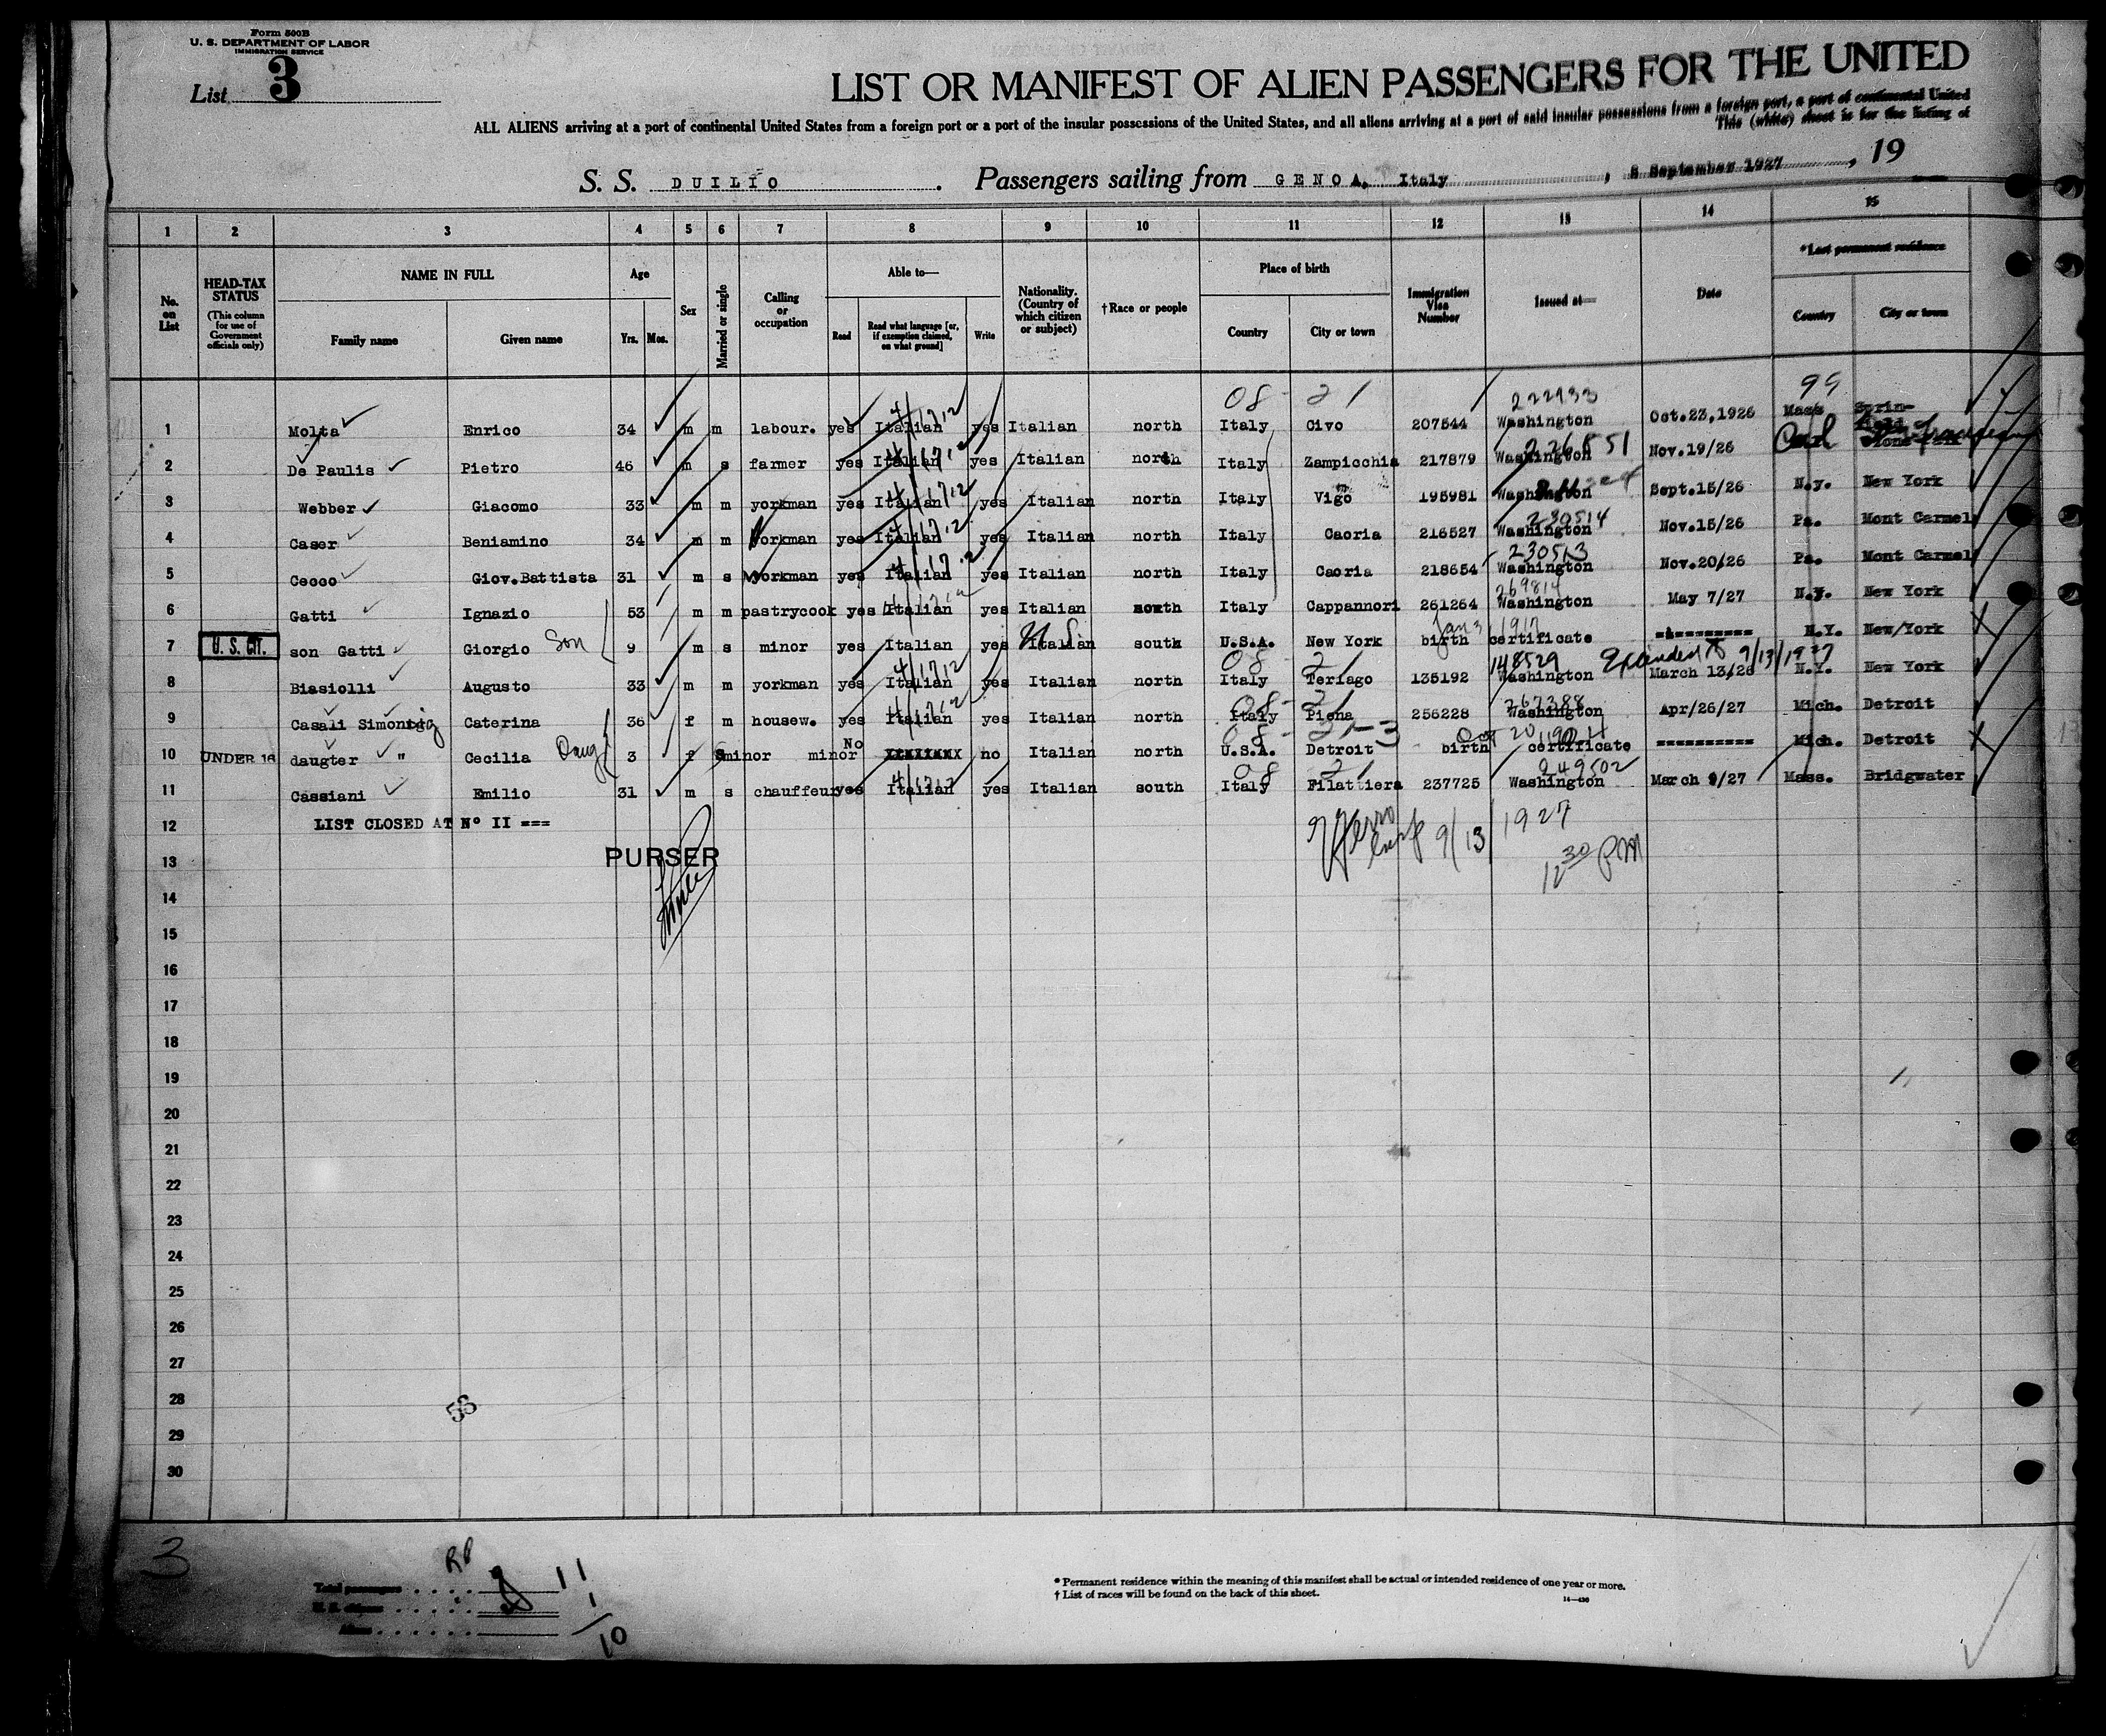 Form 500B
U. S. DEPARTMENT OF LABOR
IMMIGRATION SERVICE
List 3
LIST OR MANIFEST OF ALIEN PASSENGERS FOR THE UNITED
ALL ALIENS arriving at a port of continental United States from a foreign port or a port of the insular possessions of the United States, and all aliens arriving at a port of said insular possessions from a foreign port, a port of continental United
This (white) sheet is for the listing of
S. S. DUILIO. Passengers sailing from GENOA, Italy, 8 September 1927, 19
1 2 3 4 5 6 7 8 9 10 11 12 13 14 15
No. on List
HEAD-TAX STATUS (This column for use of Government officials only)
NAME IN FULL Family name Given name
Age Yrs. Mos.
Sex
Married or single
Calling or occupation
Able to— Read Read what language [or, if exemption claimed, on what ground] Write
Nationality. (Country of which citizen or subject)
†Race or people
Place of birth Country City or town
Immigration Visa Number
Issued at—
Date
*Last permanent residence Country City or town
08 - 21 222933 99
1 Molta Enrico 34 m m labour. yes Italian 4/1712 yes Italian north Italy Civo 207544 Washington Oct.23,1926 Mass Sprin-field
2 De Paulis Pietro 46 m s farmer yes Italian yes Italian north Italy Zampicchia 217879 Washington 226851 Nov.19/26 Cal San Francisco
3 Webber Giacomo 33 m m yorkman yes Italian 4/1712 yes Italian north Italy Vigo 195981 Washington Sept.15/26 N.y. New York
4 Caser Beniamino 34 m m workman yes Italian 4/1712 yes Italian north Italy Caoria 216527 Washington 230514 Nov.15/26 Pa. Mont Carmel
5 Cecco Giov.Battista 31 m s workman yes Italian yes Italian north Italy Caoria 218654 Washington 230513 Nov.20/26 Pa. Mont Carmel
6 Gatti Ignazio 53 m m pastrycook yes Italian yes Italian north Italy Cappannori 261264 Washington 269814 May 7/27 N.Y. New York
7 U. S. CIT. son Gatti Giorgio Son 9 m s minor yes Italian yes Italian U.S. south U.S.A. New York birth certificate Jan 3 1917 ---------- N.Y. New/York
08 - 21 148529 Extended to 9/13/1927
8 Biasiolli Augusto 33 m m yorkman yes Italian 4/1712 yes Italian north Italy Terlago 135192 Washington March 13/26 N.Y. New York
9 Casali Simonig Caterina 36 f m housew. yes Italian 4/1712 yes Italian north Italy Piena 256228 Washington 267388 Apr/26/27 Mich. Detroit
10 UNDER 16 daugter " Cecilia Daug 3 f S minor minor No XXXXXXX no Italian north U.S.A. Detroit birth certificate Oct 20 1924 ========== Mich. Detroit
08 21 249502
11 Cassiani Emilio 31 m s chauffeur yes Italian yes Italian south Italy Filattiera 237725 Washington March 9/27 Mass. Bridgwater
12 LIST CLOSED AT No II ===
9/13/1927
12 30 PM
13 PURSER
14
15
16
17
18
19
20
21
22
23
24
25
26
27
28
56
29
30
3
Total passengers 11
U. S. citizens 1
Aliens 10
* Permanent residence within the meaning of this manifest shall be actual or intended residence of one year or more.
† List of races will be found on the back of this sheet.
14—430